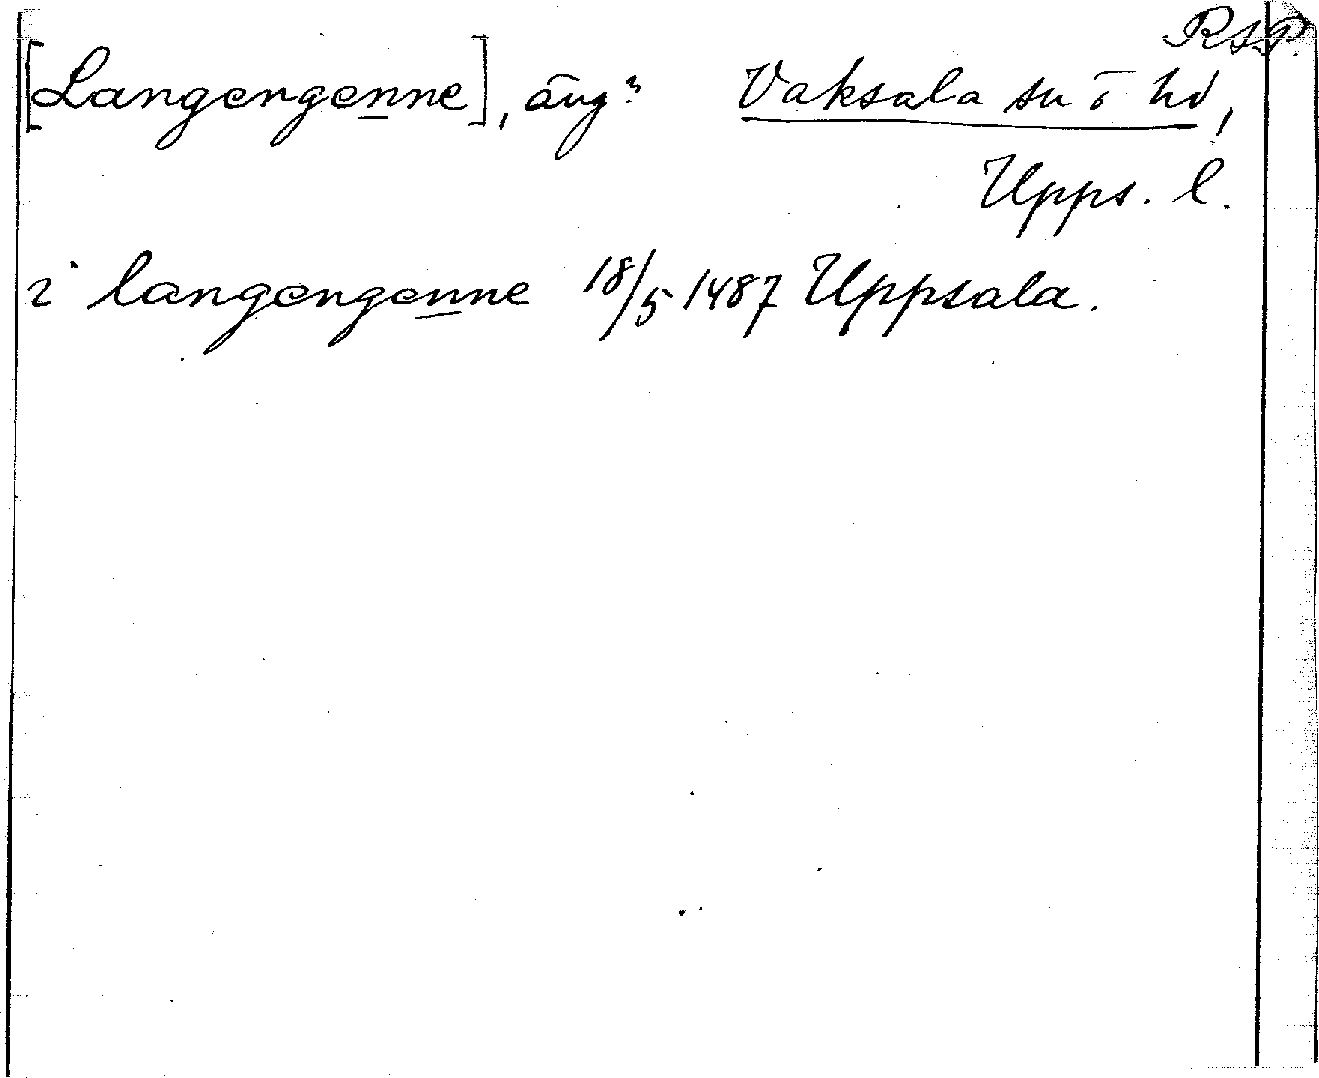 RAP.
[Langengenne], äng? Vaksala sn o hd,
Upps. l.
i langengenne 18/5 1487 Uppsala.